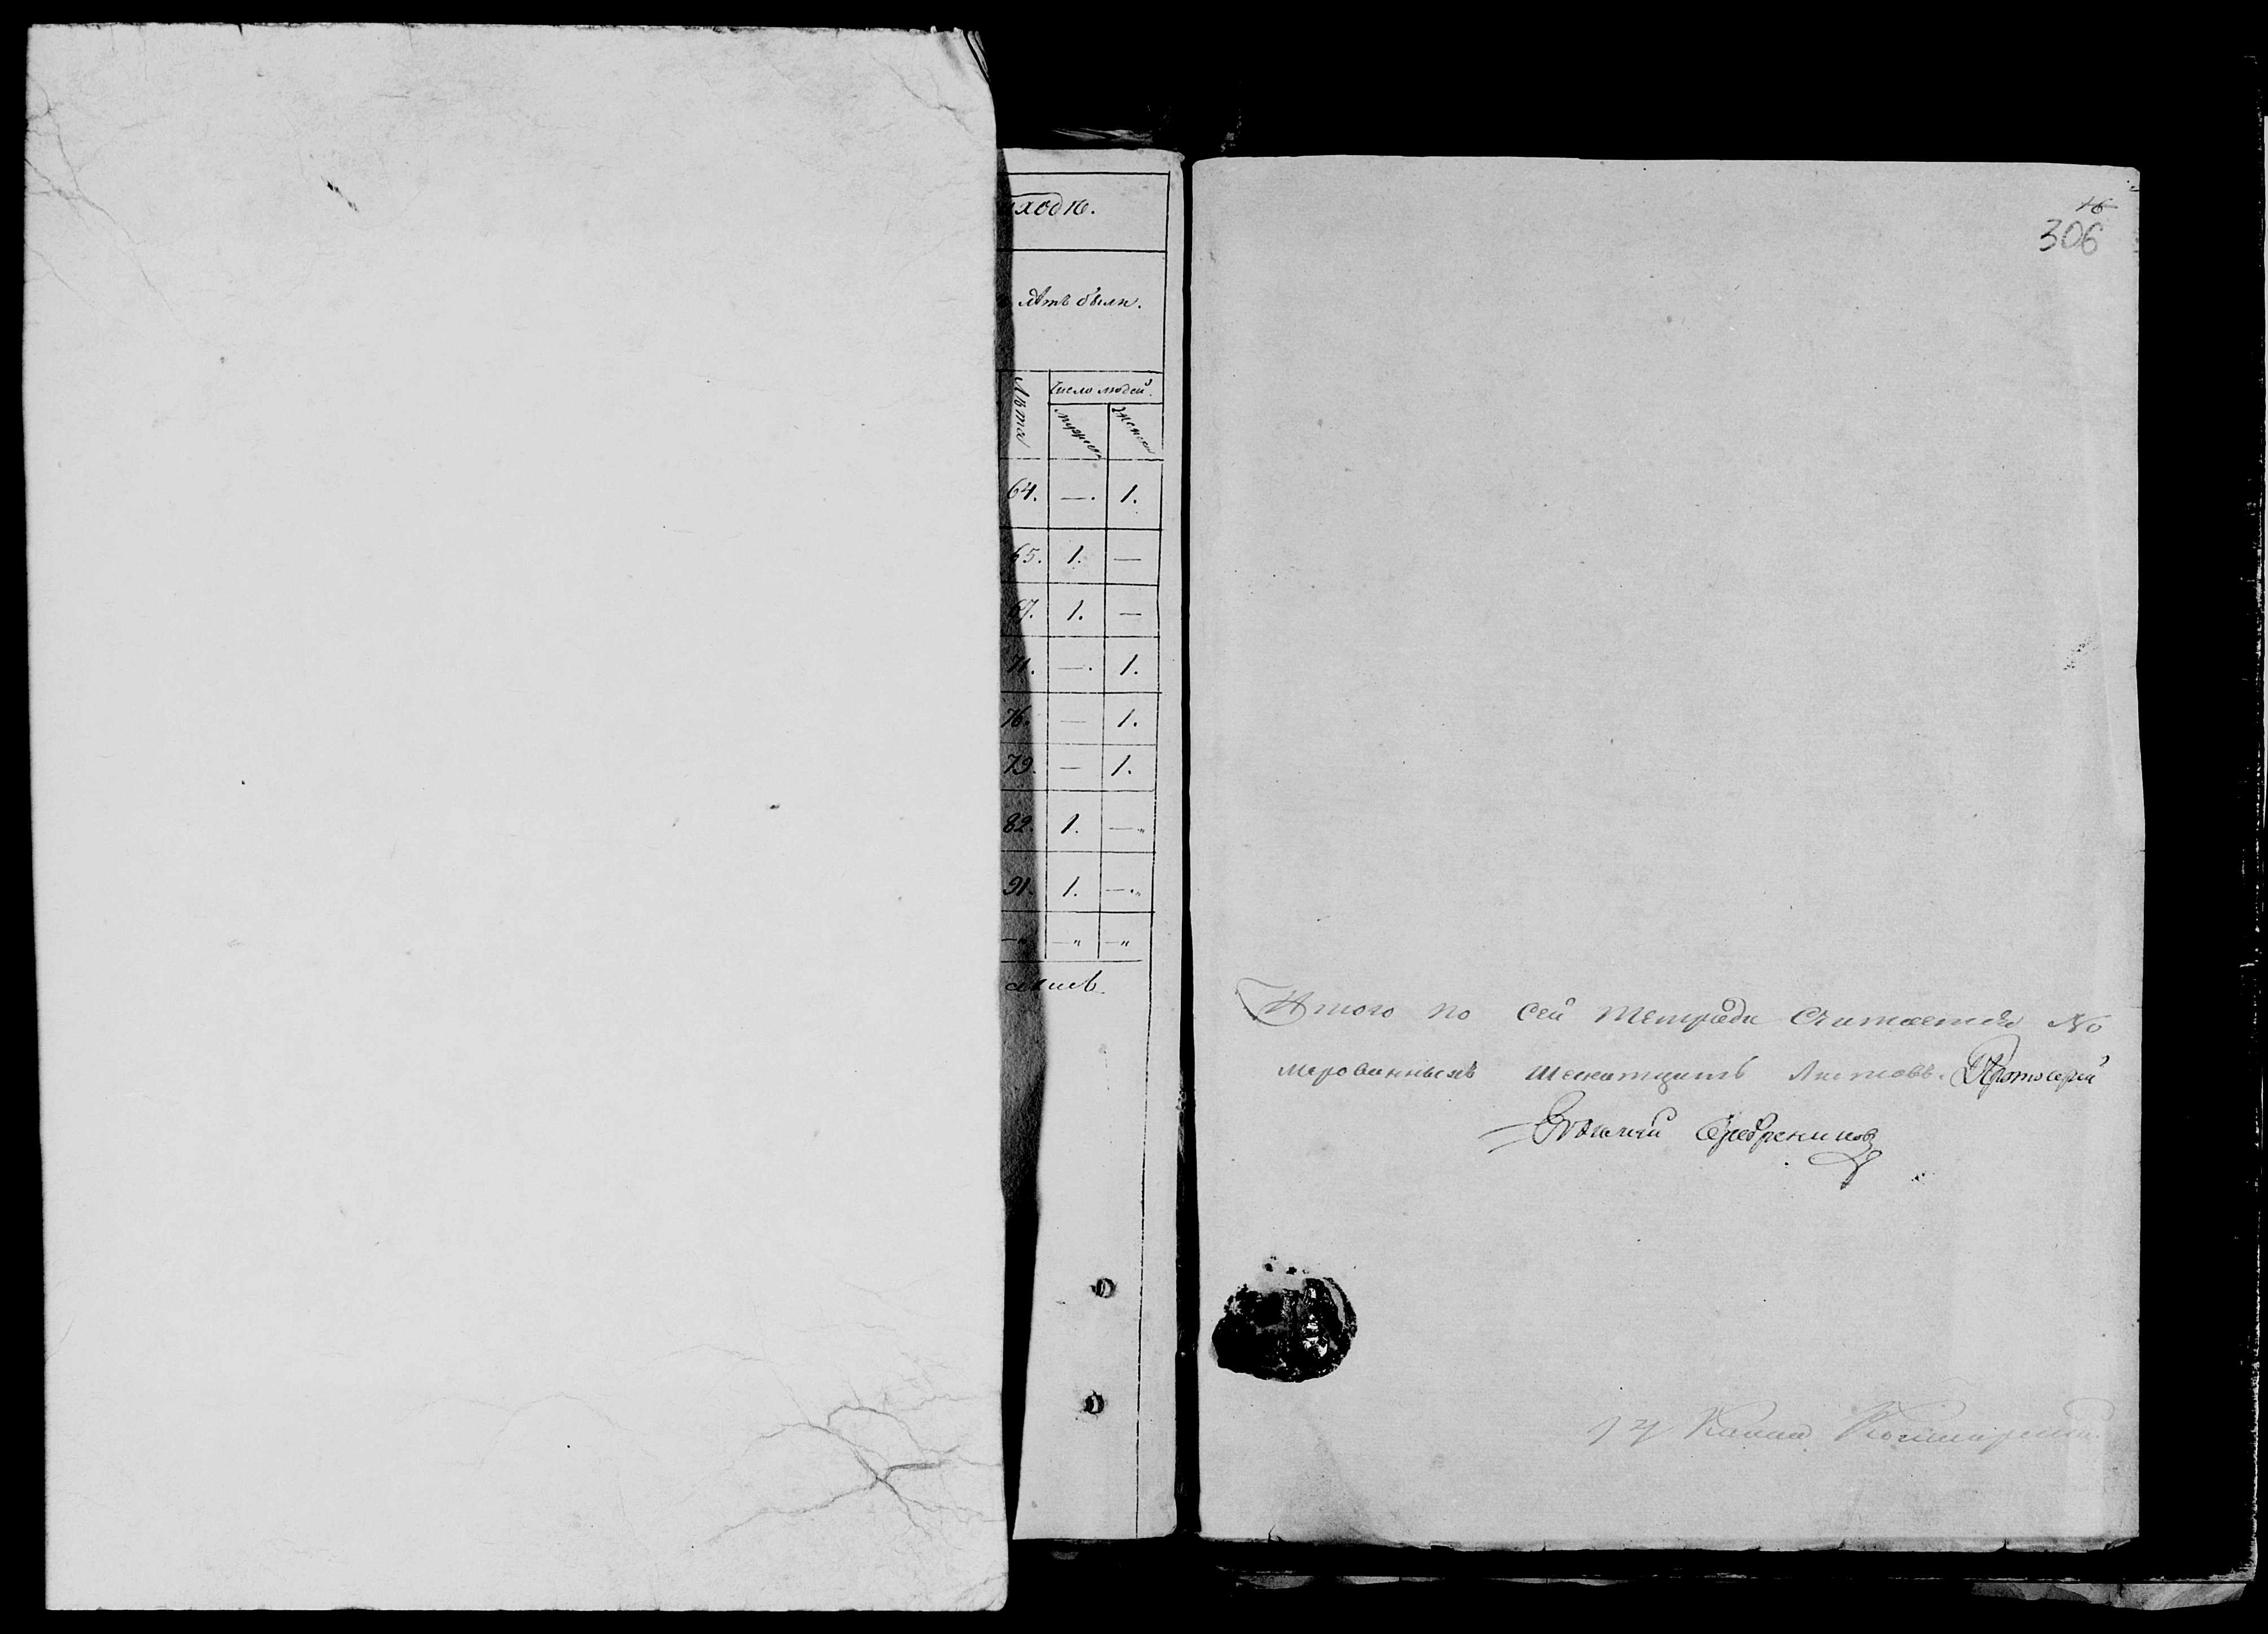 ходѣ.
лѣтъ были.
Лѣта
Число людей.
мужеск
женск
64. —. 1.
65. 1. —
67. 1. —
71. —. 1.
76. — 1.
79. — 1.
82. 1. —„
91. 1. —„
—„ —„ —„
16
306
Итого по сей тетради считается но
мерованныхъ шеснатцать листовъ. Протоерей
Серебрениковъ